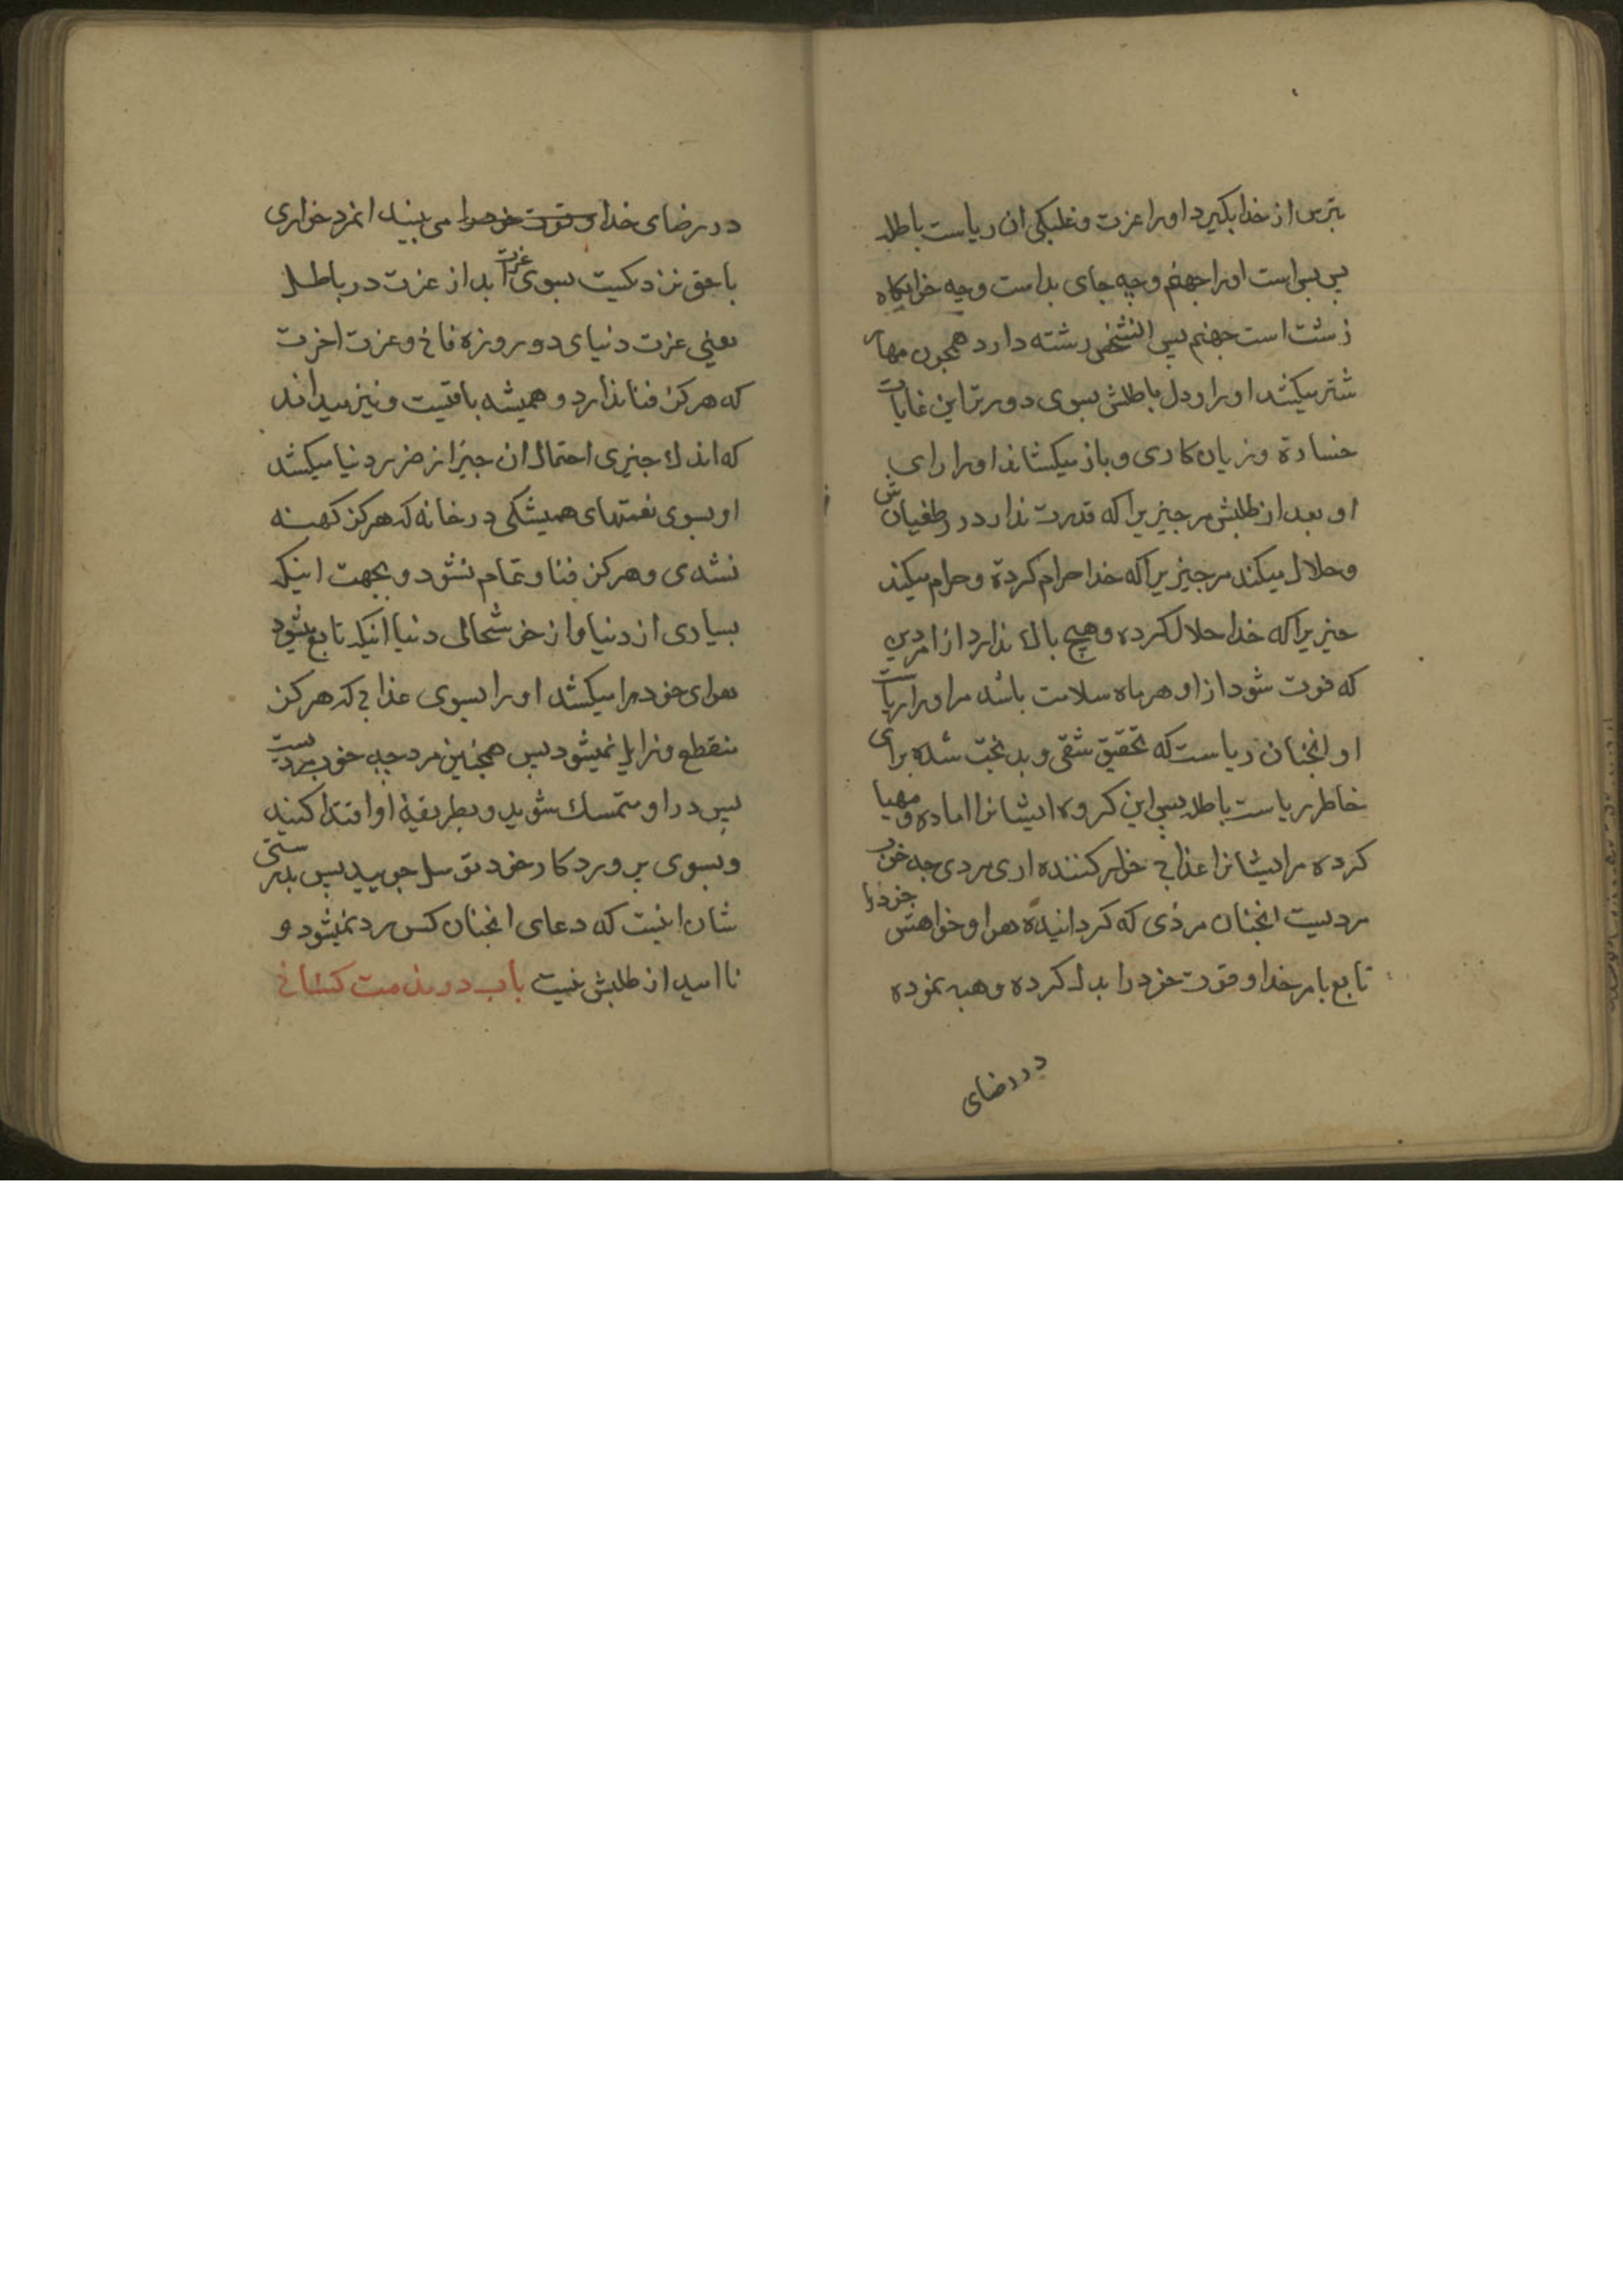 بترس از خدا بگیرد اورا عزت و غلبگی ان ریاست باطله
پس بس است اورا جهنم و چه جای بد است و چه خوابگاه
زشت است جهنم پس انشخص رشته دارد همچون مهار
شتر میکشد اورا و دل باطلش بسوی دورترین غایات
خسارة و زیان کاری و باز میکشاند اورا رای
او بعد از طلبش مر چیزیرا که قدرت ندارد در طغیانش
و حلال میکند مر چیزیرا که خدا حرام کردة و حرام میکند
چیزیرا که خدا حلال کرده و هیچ باك ندارد از امر دین
که فوت شود از او هر ماه سلامت باشد مر اورا ریاست
او انچنان ریاست که تحقیق شقی و بدبخت شده برای
خاطر ریاست باطله پس این کروه ایشانرا اماده و مهیا
کرده مر ایشانرا عذابی خوار کننده اری مردی چه خوب
مردیست انچنان مردی که کردانیده هوا و خواهش خودرا
تابع بامر خدا و قوت خودرا بدل کرده و هبه نموده
در رضای
در رضای خدا و قوت خودرا می بیند انمرد خواری
با حق نزدیکست بسوی عزت ابد از عزت در باطل
یعنی عزت دنیای دو روزه فانی و عزت اخرت
که هرکز فنا ندارد و همیشه باقیست و نیز میداند
که اندك چیزی احتمال ان چیز از ضرر دنیا میکشد
او بسوی نعمتهای همیشکی در خانه که هرکز کهنه
نشدی و هرکز فنا و تمام نشود و بجهت اینکه
بسیاری از دنیا و از خوشحالی دنیا اینکه تابع بشود
هوای خودرا میکشد اورا بسوی عذابی که هرکز
منقطع و زایل نمیشود پس همچنین مرد چه خوب مردیست
پس در او متمسك شوید و بطریقۀ او اقتدا کنید
و بسوی پروردکار خود توسل جویید پس بدرستی
شان اینست که دعای انچنان کس رد نمیشود و
ناامید از طلبش نیست باب در مذمت کسانی